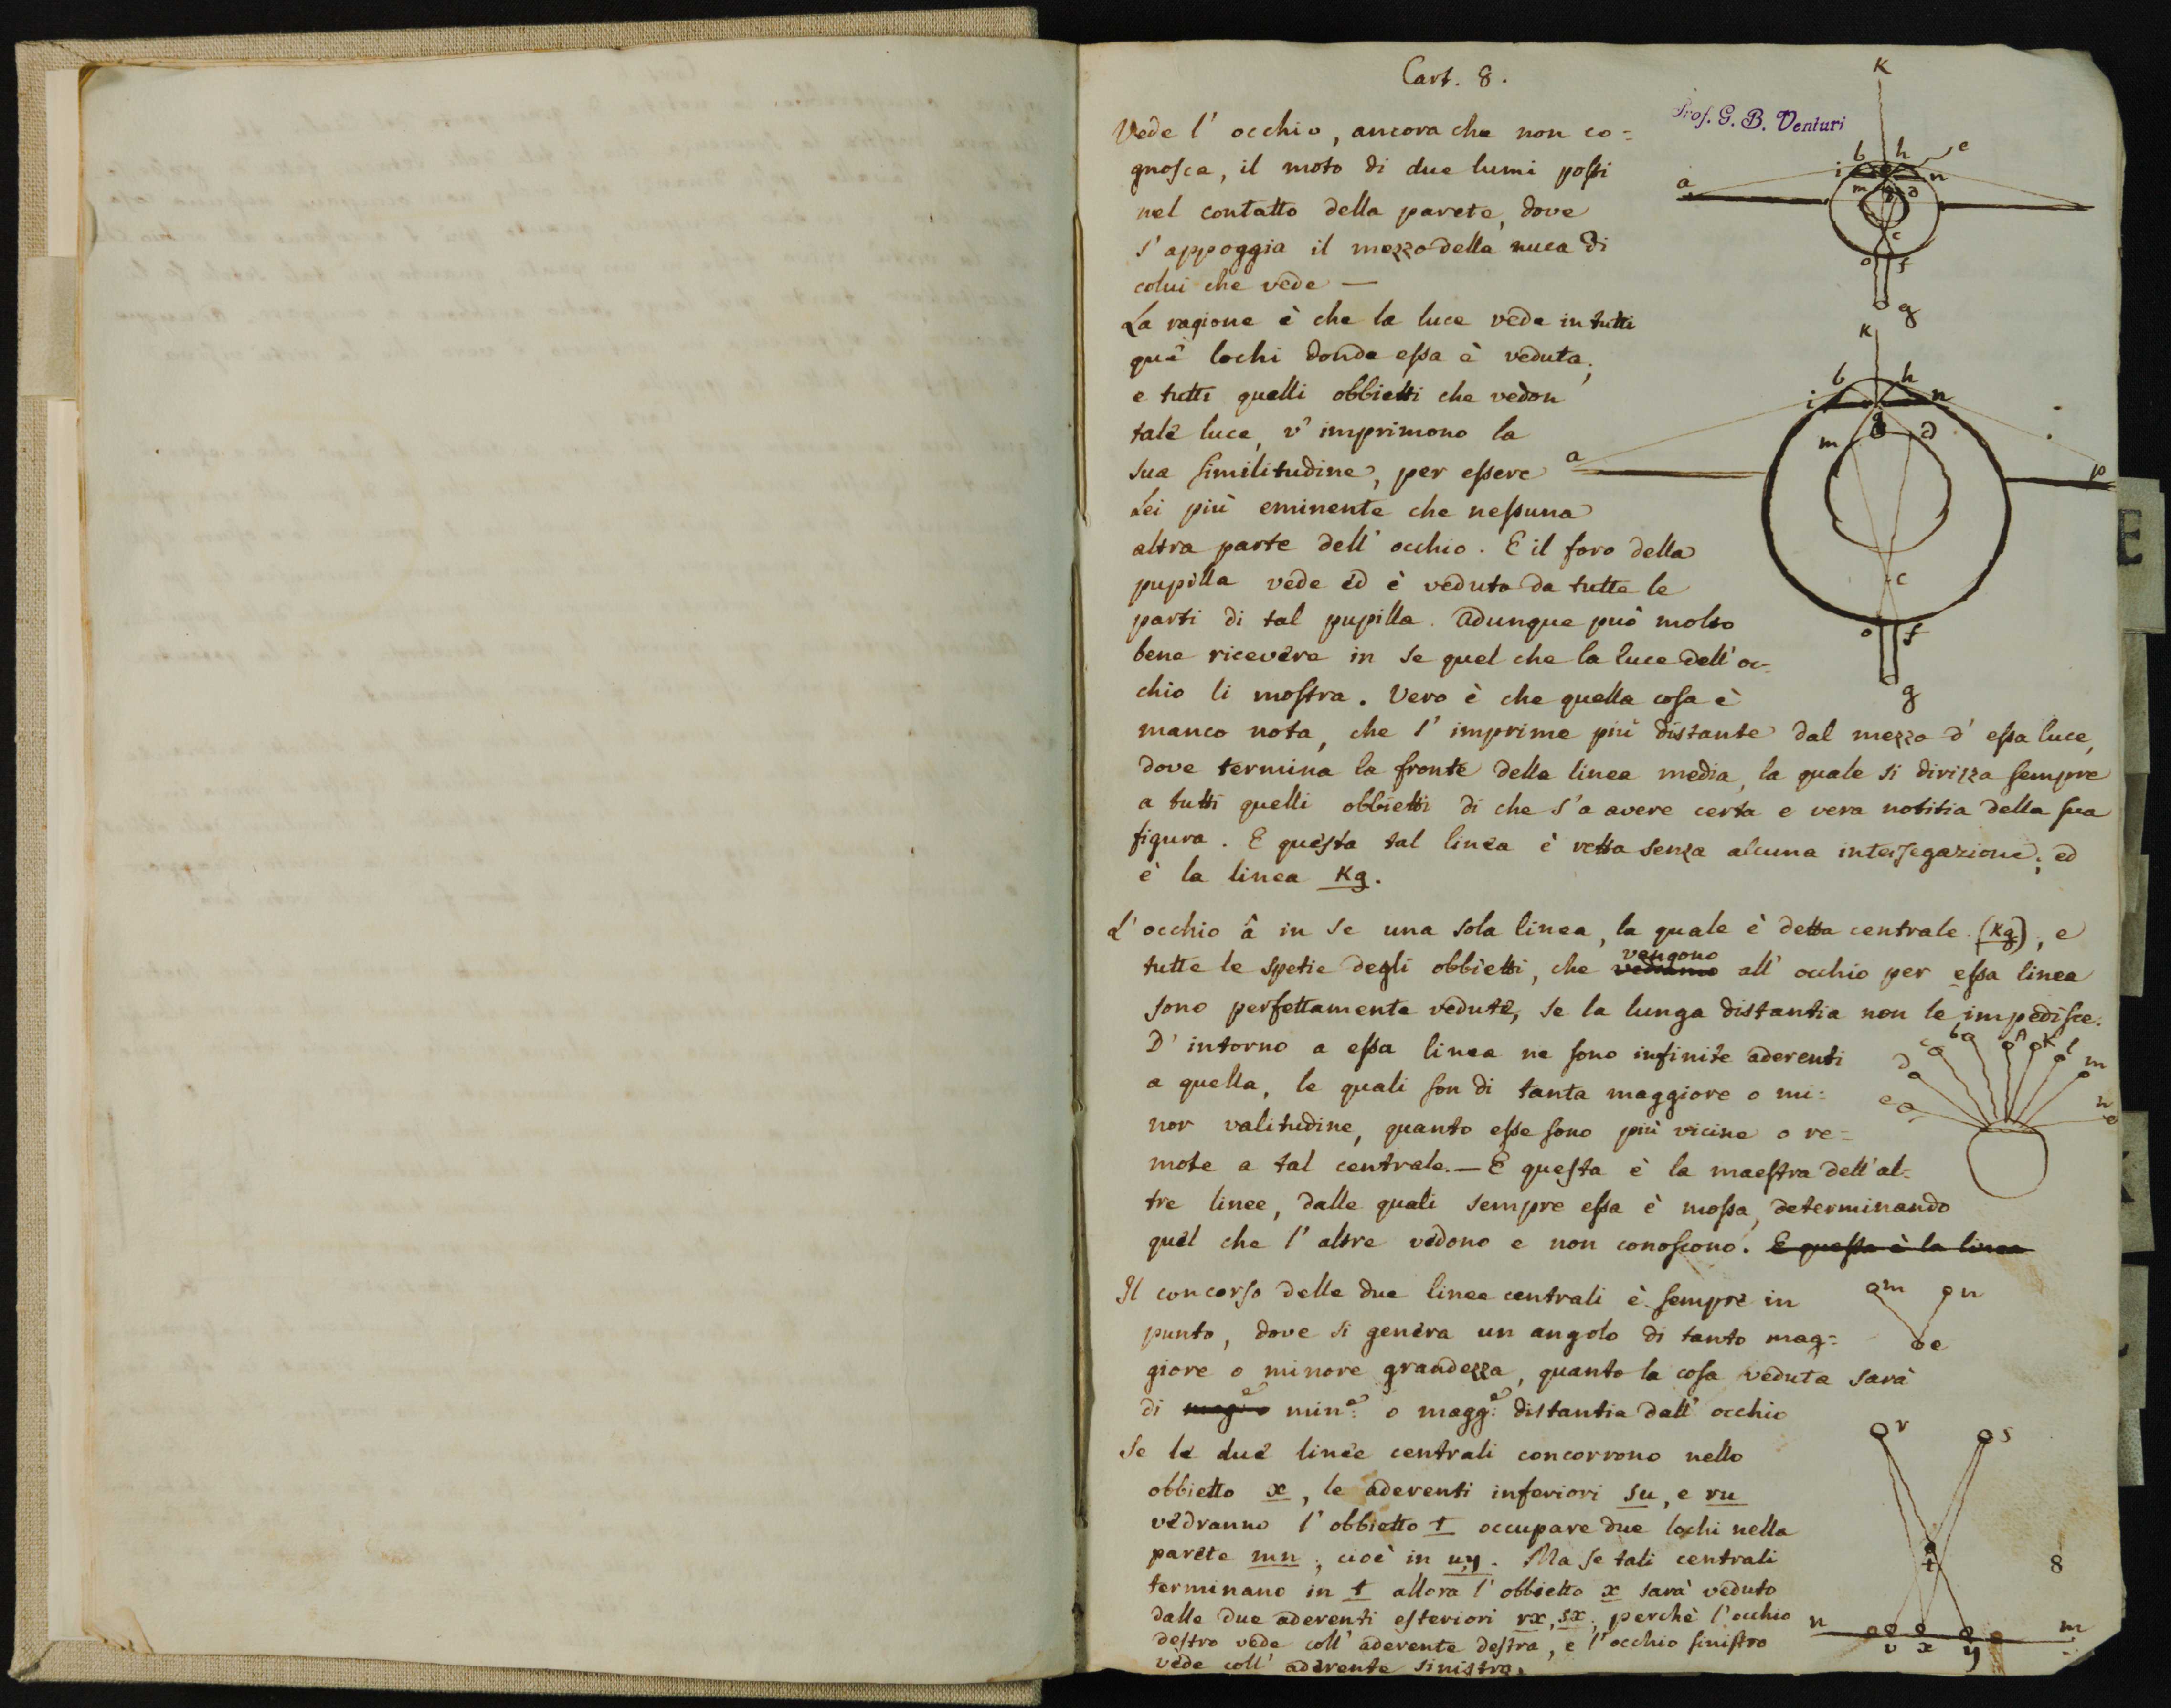 Cart. 8.
Prof. G. B. Venturi
Vede l' occhio, ancora che non co=
gnosca, il moto di due lumi possi
nel contatto della parete, dove
s'appoggia il mezzo della nuca di
colui che vede —
La ragione è che la luce vede in tutti
que' lochi donde essa è veduta;
e tutti quelli obbietti che vedon
tale luce, v' imprimono la
sua similitudine, per essere
Lei più eminente che nessuna
altra parte dell' occhio. E il foro della
pupilla vede ed è veduto da tutte le
parti di tal pupilla. Adunque può molto
bene ricevere in se quel che la luce dell' oc=
chio li mostra. Vero è che quella cosa è
manco nota, che s' imprime più distante dal mezzo d' essa luce,
dove termina la fronte della linea media, la quale si dirizza sempre
a tutti quelli obbietti di che s'a avere certa e vera notitia della sua
figura. E questa tal linea è retta senza alcuna intersegazione; ed
è la linea Kg.
L' occhio â in se una sola linea, la quale è detta centrale (Kg), e
tutte le spetie degli obbietti, che vengono all' occhio per essa linea
sono perfettamente vedute, se la lunga distantia non le impedisce.
D' intorno a essa linea ne sono infinite aderenti
a quella, le quali son di tanta maggiore o mi=
nor valitudine, quanto esse sono più vicine o re=
mote a tal centrale. — E questa è la maestra dell' al=
tre linee, dalle quali sempre essa è mossa, determinando
quel che l' altre vedono e non conoscono. E questa è la linea
Il concorso delle due linee centrali è sempre in
punto, dove si genera un angolo di tanto mag=
giore o minore grandezza, quanto la cosa veduta sarà
di min.e o magg.e distantia dall' occhio
Se le due linee centrali concorrono nello
obbietto x, le aderenti inferiori su, e ru
vedranno l' obbietto t occupare due lochi nella
parete mn, cioè in uy. Ma se tali centrali
terminano in t allora l' obbietto x sarà veduto
dalle due aderenti esteriori rx, sx, perchè l'occhio
destro vede coll' aderente destra, e l'occhio sinistro
vede coll' aderente sinistra.
K
b h e
i n
a m d
c
o f
g
K
b h
i n
m d
a p
c
o f
g
c b A K l
d m
e n
m n
e
r s
t
8
n m
v x y
E